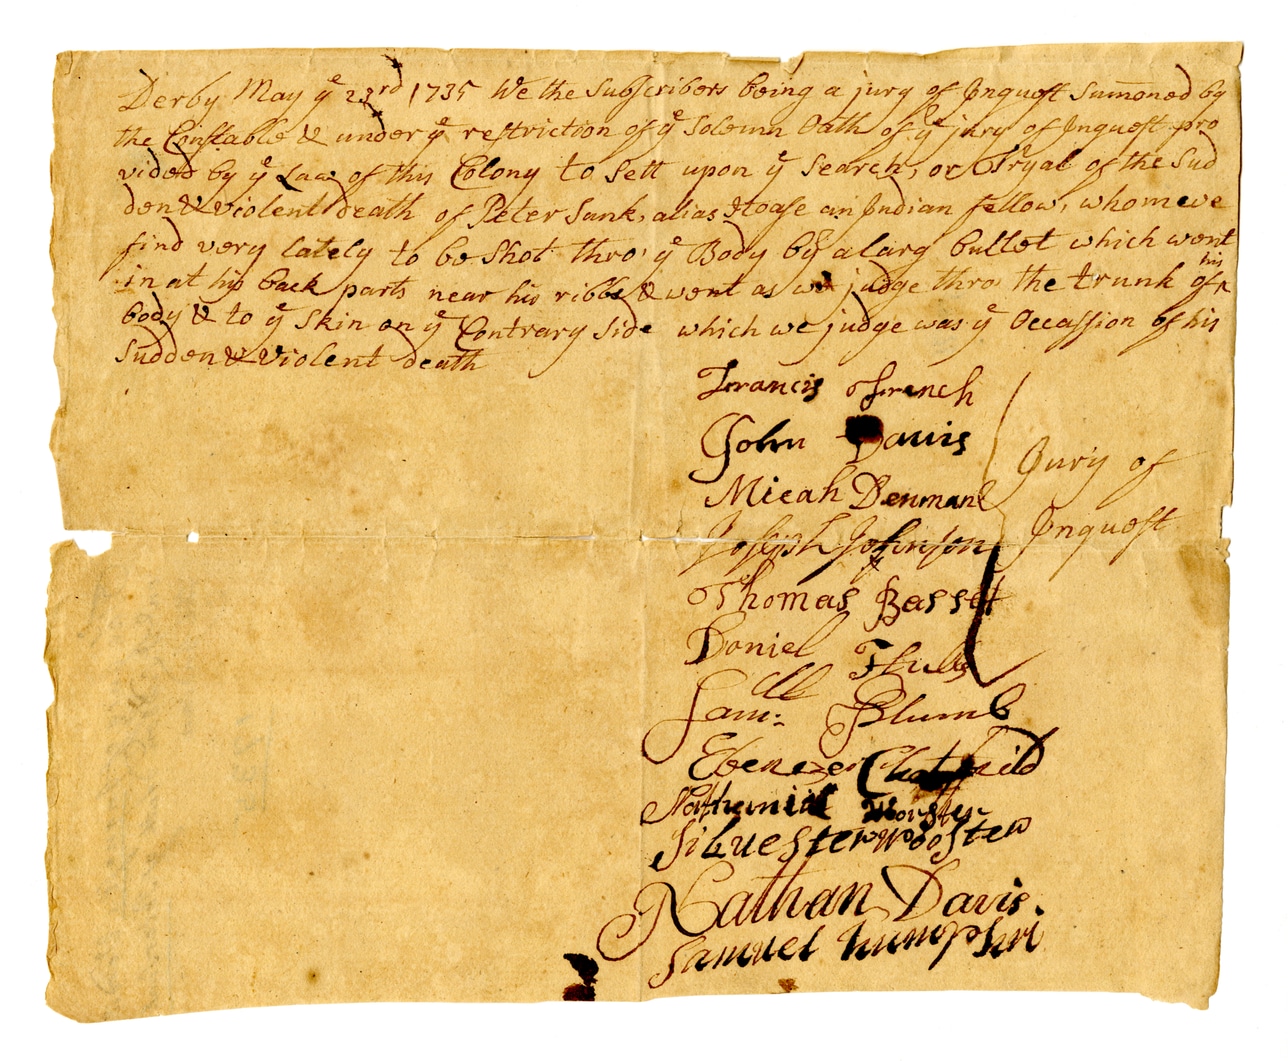 Derby May yᵉ 23rd 1735 We the Subscribers being a jury of Inquest Sumoned by
the Constable & under yᵉ restriction of yᵉ Solemn Oath of yᵉ jury of Inquest pro
vided by yᵉ Law of this Colony to Sett upon yᵉ Search, or Tryal of the Sud
den & Violent death of Peter Sunk, alias an Indian fellow, whom we
find very lately to be Shot thro yᵉ Body by a larg bullet which went
in at his back parts near his ribbs & went as we judge thro the trunk of his
body & to yᵉ Skin on yᵉ Contrary Side which we judge was yᵉ Occassion of his
Sudden & Violent death
Francis French
John Davis
Micah Denman
Joseph Johnson
Thomas Basset
Daniel
Samll: Plumb
Ebenezer Chatfeild
Nathaniel Worster
Silvester Wooster
Nathan Davis.
Samuel humphri
Jury of
Inquest